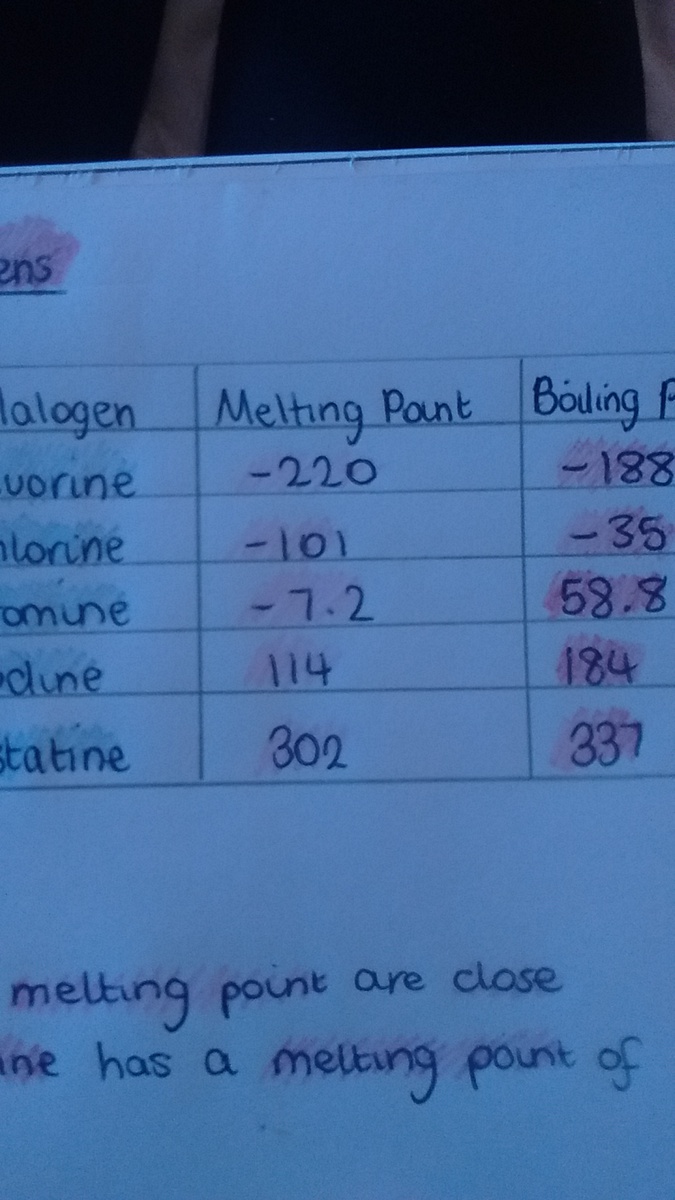 ens
alogen Melting Point Boiling P
uorine -220 -188
hlorine -101 -35
omine -7.2 58.8
odine 114 184
statine 302 337
melting point are close
ine has a melting point of